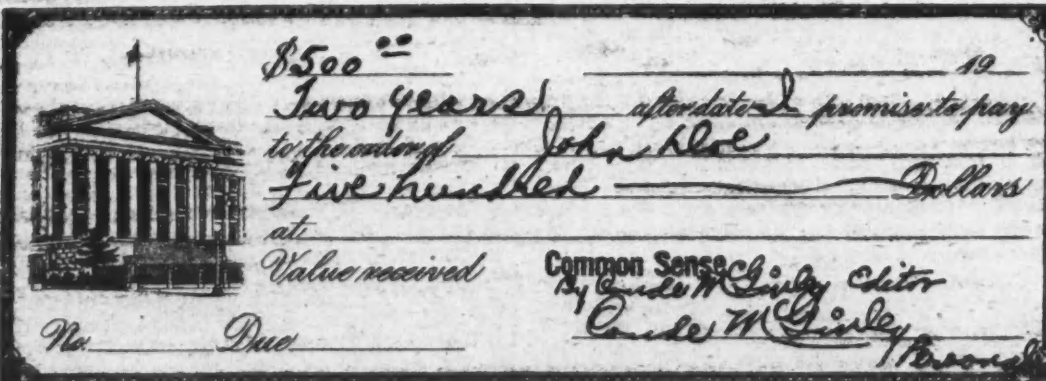 $500 00 19
Two years after date I promise to pay
to the order of John Doe
Five hundred Dollars
at
Value received Common Sense
By Conde McGinley Editor
No. Due Conde McGinley
Personal